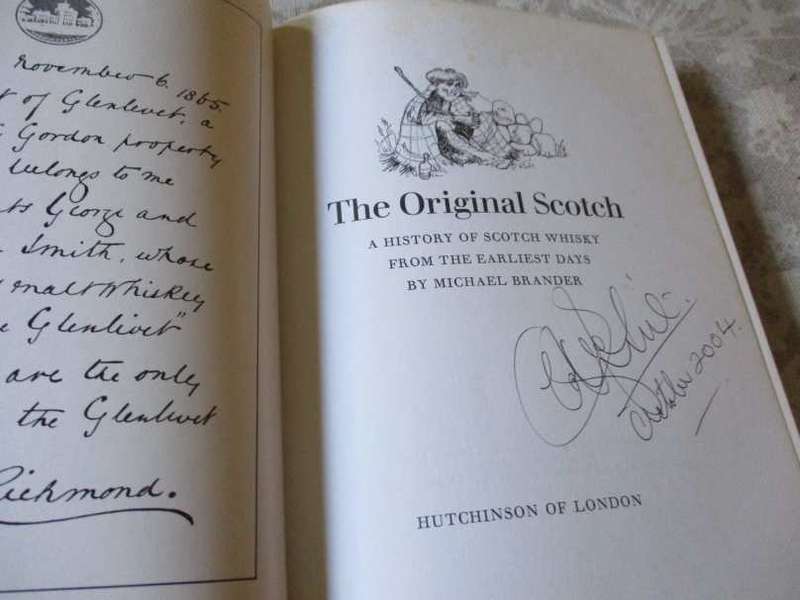 November 6. 1865.
of Glenlivet, a
Gordon property
belongs to me
George and
Smith, whose
malt Whiskey
Glenlivet"
are the only
the Glenlivet
Richmond.
The Original Scotch
A HISTORY OF SCOTCH WHISKY
FROM THE EARLIEST DAYS
BY MICHAEL BRANDER
October 2004.
HUTCHINSON OF LONDON